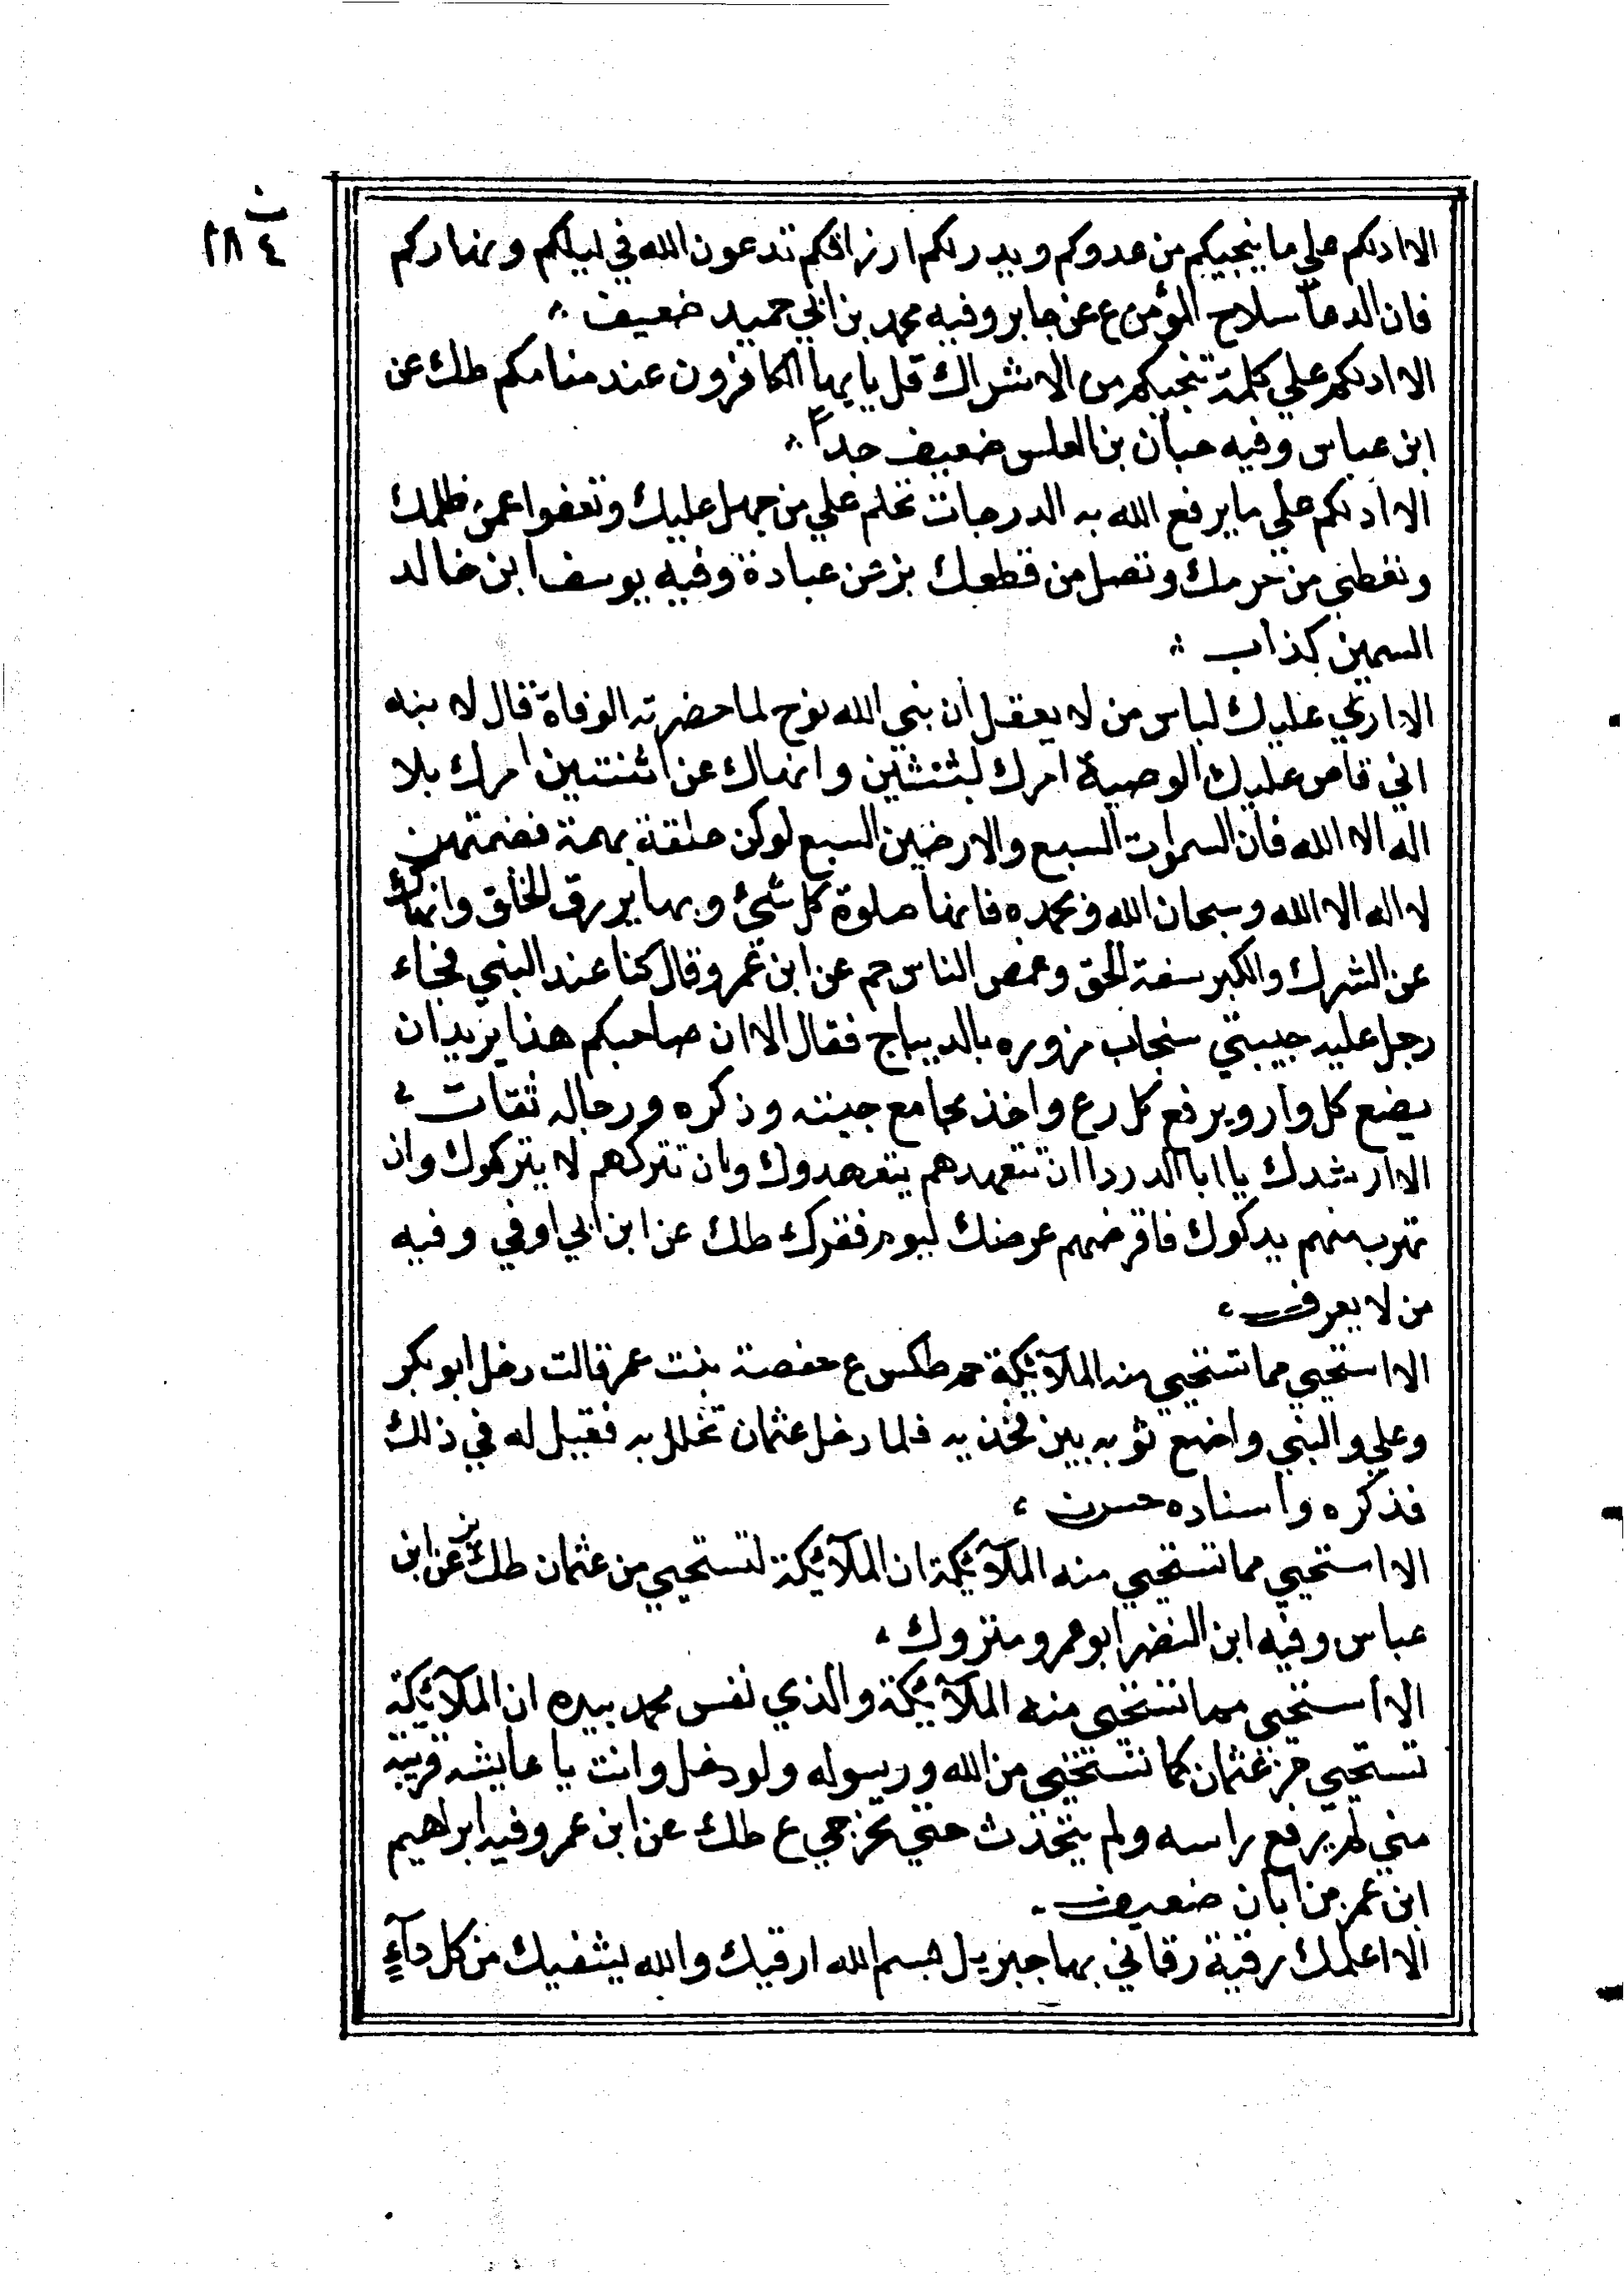 ن
٢٨٤
الا ادلكم علي ما ينجيكم من عدوكم ويدر لكم ارزاقكم تدعون الله في ليلكم ونهاركم
فان الدعا سلاح المؤمن ع عن جابر وفيه محمد بن ابي حميد ضعيف
الا ادلكم علي كلمة تنجيكم من الاشراك قل يا يها الكافرون عند منامكم طك عن
ابن عباس وفيه حبان بن العلس ضعيف جداً
الا ادلكم علي ما يرفع الله به الدرجات تحلم علي من جهل عليك وتعفوا عمن ظلمك
وتعطي من حرمك وتصل من قطعك بز عن عبادة وفيه يوسف ابن خالد
السمين كذاب
الا اري عليك لباس من لا يعقل ان نبي الله نوح لما حضرته الوفاة قال لا بنه
اني قاص عليك الوصية امرك بثنتين وانهاك عن اثنتين امرك بلا
اله الا الله فان السموات السبع والارضين السبع لو كن حلقة بهمة فضمتهن
لا اله الا الله وسبحان الله وبحمده فانها صلوة كل شئ وبها يرزق الخلق وانهاك
عن الشرك والكبر سفة الحق وغمص الناس حم عن ابن عمرو قال كنا عند النبي فجاء
رجل عليه جيبتي سنجاب مزوره بالديباج فقال الا ان صاحبكم هذا يريد ان
يضع كل وار ويرفع كل رع واخذ بمجامع جبته وذكره ورجاله ثقات
الا ارشدك يا ابا الدردا ان تتعهدهم يتعهدوك وان تتركهم لا يتركوك وان
تهرب منهم يدركوك فاقرضهم عرضك ليوم فقرك طك عن ابن ابي اوفي وفيه
من لا يعرف
الا استحيي مما تستحيي منه الملآئيكة حم طكس ع حفصة بنت عمر قالت دخل ابو بكر
وعلي والنبي واضع ثوبه بين فخذيه فلما دخل عثمان تجلل به فقيل له في ذلك
فذكره واسناده حسن
الا استحيي مما تستحيي منه الملآئيكة ان الملآئيكة لتستحيي من عثمان طك بز عن ابن
عباس وفيه ابن النضر ابو عمرو متروك
الا أستحيي مما تستحيي منه الملآئيكة والذي نفس محمد بيده ان الملآئيكة
تستحيي من عثمان كما تستحيي من الله ورسوله ولو دخل وانت يا عايشه قريبة
مني لم يرفع راسه ولم يتحدث حتي تخرجي ع طك عن ابن عمر وفيه ابراهيم
ابن عمر من ابان ضعيف
الا اعلمك رقية رقاني بها جبريل بسم الله ارقيك والله يشفيك من كل دآءٍ